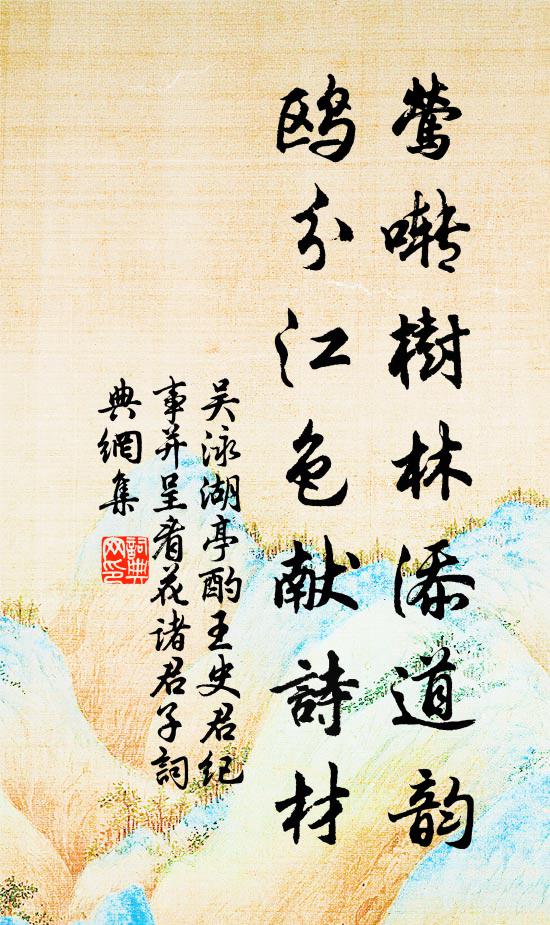 莺啭樹林添道韵
鸥分江色献詩材
吴泳湖亭酌王史君纪
事并呈看花诸君子詞
典網集
詞典网印